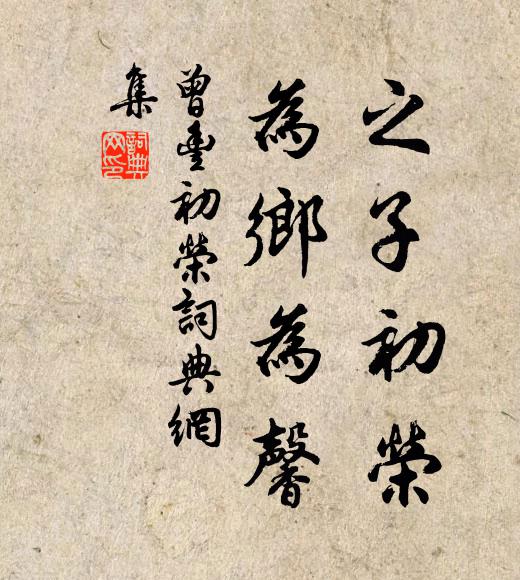 之子初榮
為鄉為馨
曾豐初榮詞典網
集
詞典
网印